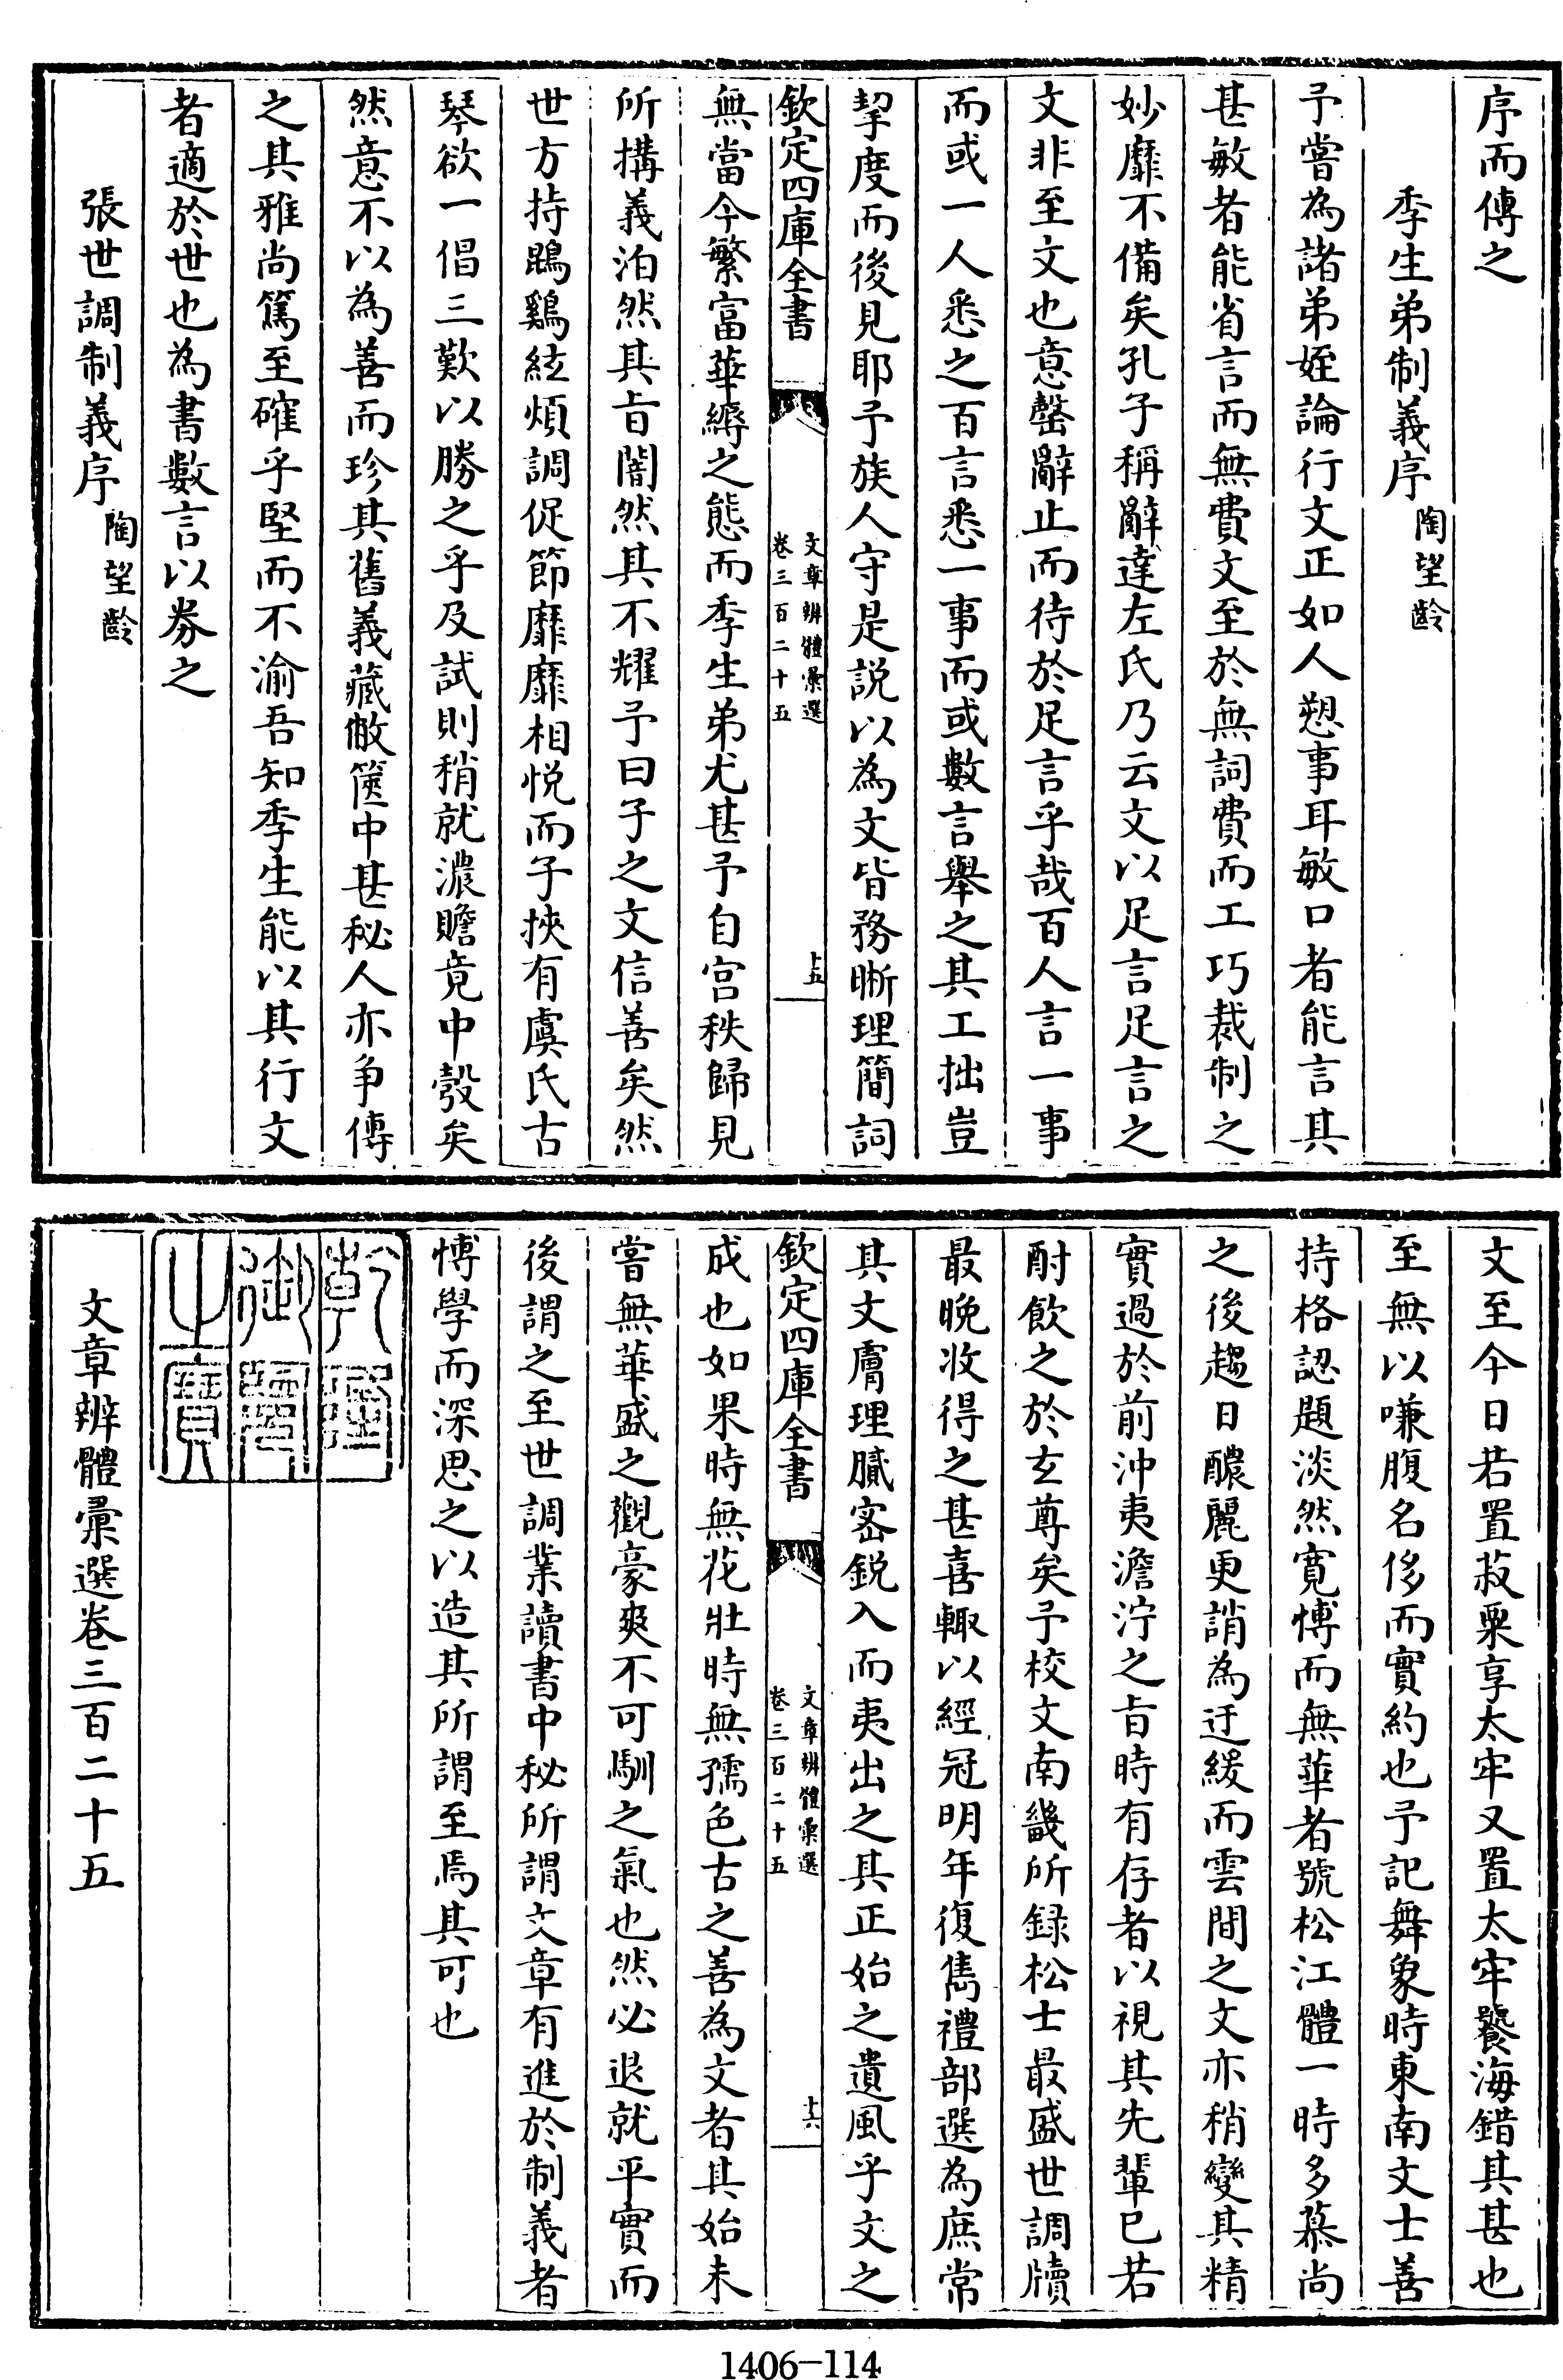 序而傳之
季生弟制義序陶望齡
予嘗為諸弟姪論行文正如人愬事耳敏口者能言其
甚敏者能省言而無費文至於無詞費而工巧裁制之
妙靡不備矣孔子稱辭達左氏乃云文以足言足言之
文非至文也意罄辭止而待於足言乎哉百人言一事
而或一人悉之百言悉一事而或數言舉之其工拙豈
挈度而後見耶予族人守是説以為文皆務晰理簡詞
欽定四庫全書
文章辨體彙選
卷三百二十五
十五
無當今繁富華縟之態而季生弟尤甚予自宫秩歸見
所搆義泊然其㫖闇然其不耀予曰子之文信善矣然
世方持鵾鷄絃煩調促節靡靡相悦而子挾有虞氏古
琴欲一倡三歎以勝之乎及試則稍就濃贍竟中彀矣
然意不以為善而珍其舊義藏敝篋中甚秘人亦争傳
之其雅尚篤至確乎堅而不渝吾知季生能以其行文
者適於世也為書數言以劵之
張世調制義序陶望齡
文至今日若置菽粟享太牢又置太牢饔海錯其甚也
至無以嗛腹名侈而實約也予記舞象時東南文士善
持格認題淡然寛愽而無華者號松江體一時多慕尚
之後趨日醲麗更誚為迂緩而雲間之文亦稍變其精
實過於前沖夷澹泞之㫖時有存者以視其先輩已若
酎飲之於玄尊矣予校文南畿所録松士最盛世調牘
最晚收得之甚喜輙以經冠明年復雋禮部選為庶常
其文膚理膩宻鋭入而夷出之其正始之遺風乎文之
欽定四庫全書
文章辨體彙選
卷三百二十五
十六
成也如果時無花壯時無孺色古之善為文者其始未
嘗無華盛之觀豪爽不可馴之氣也然必退就平實而
後謂之至世調業讀書中秘所謂文章有進於制義者
愽學而深思之以造其所謂至焉其可也
乾隆
御覽
之寶
文章辨體彙選卷三百二十五
1406-114